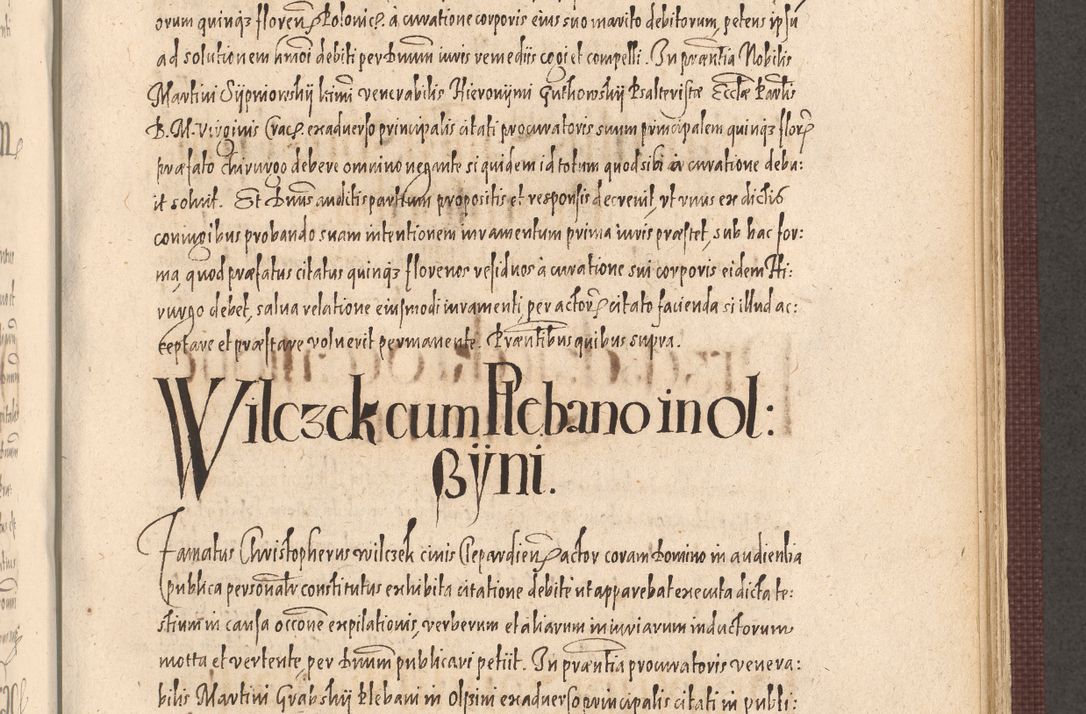 orum quinqz floren Polonic. à curatione corporis eius suo marito debitorum, petens ipsu
ad solutionem hmoi debiti per Dnum iuris remediis cogi et compelli. In prætia Nobilis
Martini Sijpniowskij kmi venerabilis Hieronijmi Gutkowskij Psalteristæ Ecclæ Parlis
B. M. Virginis Crac. exaduerso principalis citati procuratoris suum principalem quinqz flor
præfato chirurgo debere omnino negante siquidem id totum quod sibi à curatione debu:
it soluit. Et Dnus auditis partium propositis et responsis decreuit, vt vnus ex dictis
coniugibus probando suam intentionem iuramentum prima iuris præstet, sub hac for:
ma, quod præfatus citatus quinqz florenos residuos à curatione sui corporis eidem Hi:
rurgo debet, salua relatione eiusmodi iuramenti, per actor citato facienda si illud ac:
ceptare et præstare voluerit permanente. Præntibus quibus supra.
Wilczek cum Plebano in ol:
Bÿni.
Famatus Christopherus wilczek ciuis Clepardien actor coram Domino in audientia
publica personalr constitutus exhibita citatione debite ut apparebat executa dicta te:
stium in causa occone expilationis, verberum et aliarum iniuriarum inductorum
motta et vertente, per Dnum publicari petiit. In præntia procuratoris venera:
bilis Martini Grabskij Plebani in Olßini exaduerso principalis citati in publi: